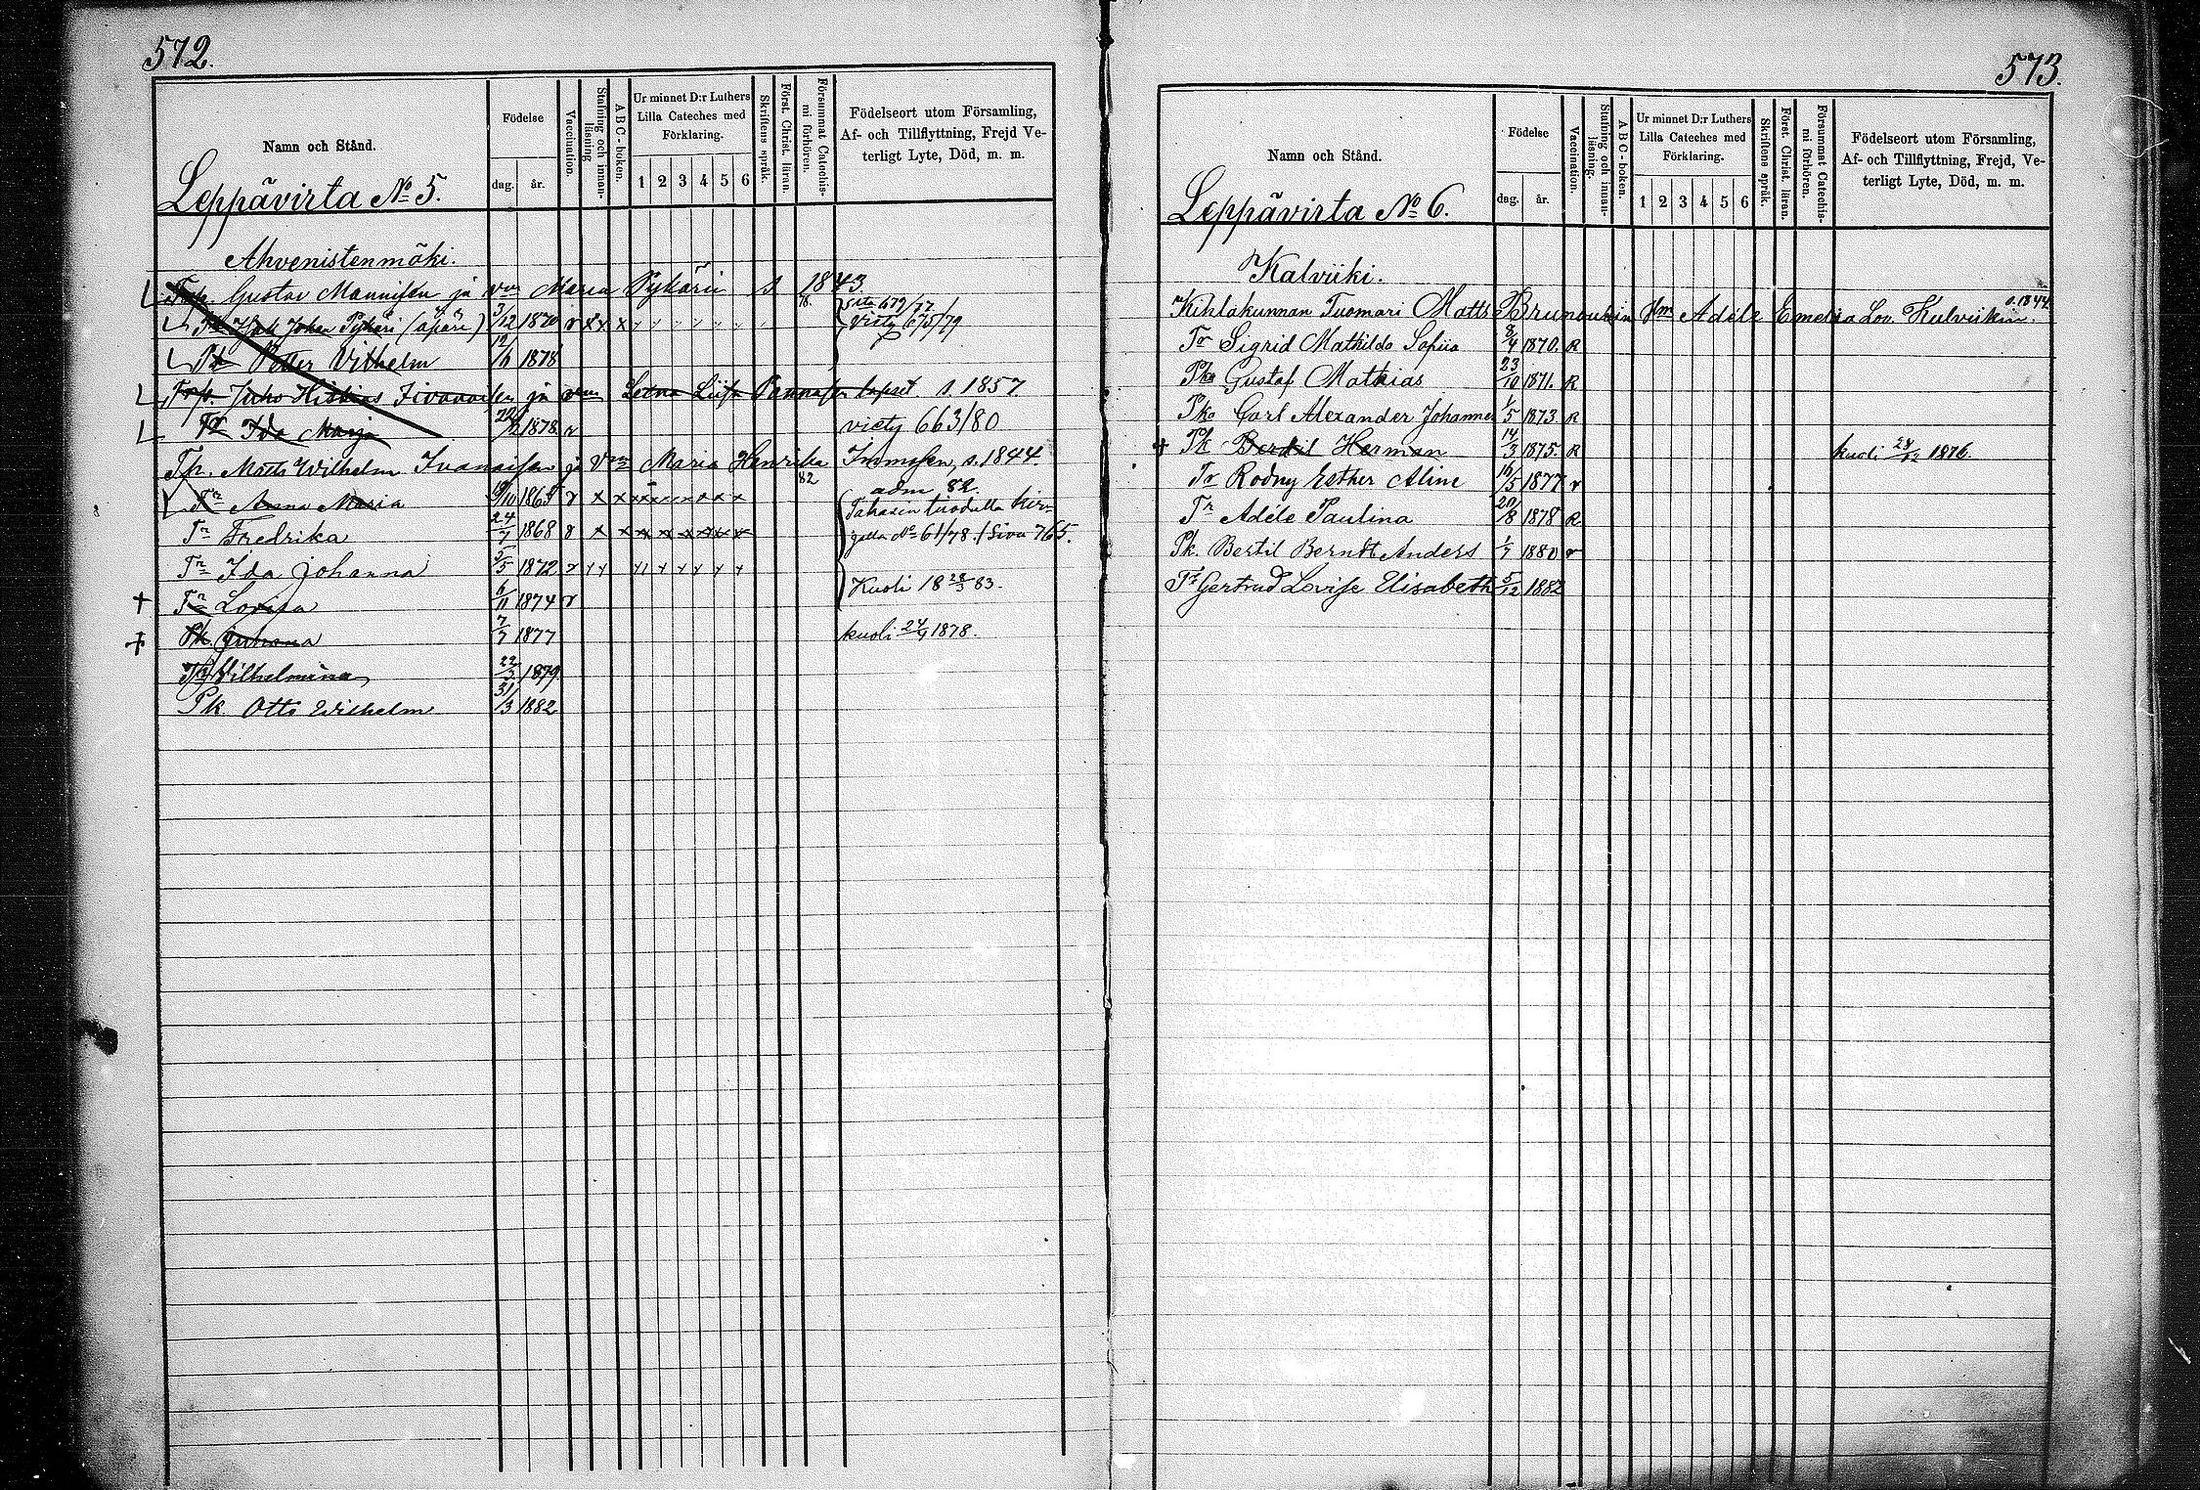 572.
Namn och Stånd.
Födelse
dag.
år.
Vaccination.
Stafning och innan-
läsning
A B C - boken.
Ur minnet D:r Luthers
Lilla Cateches med
Förklaring.
1 2 3 4 5 6
Skriftens språk.
Först. Christ. läran.
Försummat Catechis-
mi förhören.
Födelseort utom Församling,
Af- och Tillflyttning, Frejd Ve-
terligt Lyte, Död, m. m.
Leppävirta No 5.
Ahvenistenmäki.
Gustav Manniste ja vm Maria Pykäri s 1843.
Johan Pykäri (äpärä) 3/12 1870 v x x x 78. 672/77
Petter Vilhelm 1878 viety 675/79
Juho ja vm Leena Liisa s. 1857
Tr Ida Maria 22/2 1878 v viety 663/80
Matts Wilhelm Ivanaisen ja Vm Maria Henrika Immosen, s. 1844.
Tr Anna Maria 1865 v x x 82 adm 82.
Tr Fredrika 24/7 1868 v x x x x x x x x No 61/78. / Sivu 765.
Tr Ida Johanna 5/5 1872 v
+ Tr Lovisa 6/11 1874 v Kuoli 18 28/3 83.
+ Pk Juhana 7/7 1877 kuoli 24/9 1878.
Tr Vilhelmina 22/3 1879
Pk Otto Wilhelm 31/3 1882
573.
Namn och Stånd.
Födelse
dag.
år.
Vaccination.
Stafning och innan-
läsning.
A B C - boken.
Ur minnet D:r Luthers
Lilla Cateches med
Förklaring.
1 2 3 4 5 6
Skriftens språk.
Först. Christ. läran.
Försummat Catechis-
mi förhören.
Födelseort utom Församling,
Af- och Tillflyttning, Frejd, Ve-
terligt Lyte, Död, m. m.
Leppävirta No 6.
Kalviiki.
s. 1844
Kihlakunnan Tuomari Matts Brunoukin Vm Adéle Emelia Lov.
Tr Sigrid Mathilda Sofiia 8/4 1870. R
Pko Gustaf Mathias 23/10 1871. R
Pko Carl Alexander Johannes 1/5 1873. R
+ Pk Bertil Herman 14/3 1875. R kuoli 24/12 1876.
Tr Rodny Esther Aline 16/5 1877 v
Tr Adéle Paulina 20/8 1878 R
Pk. Bertil Berndt Anders 1/7 1880 v
Tr Gertrud Lovise Elisabeth 5/12 1882